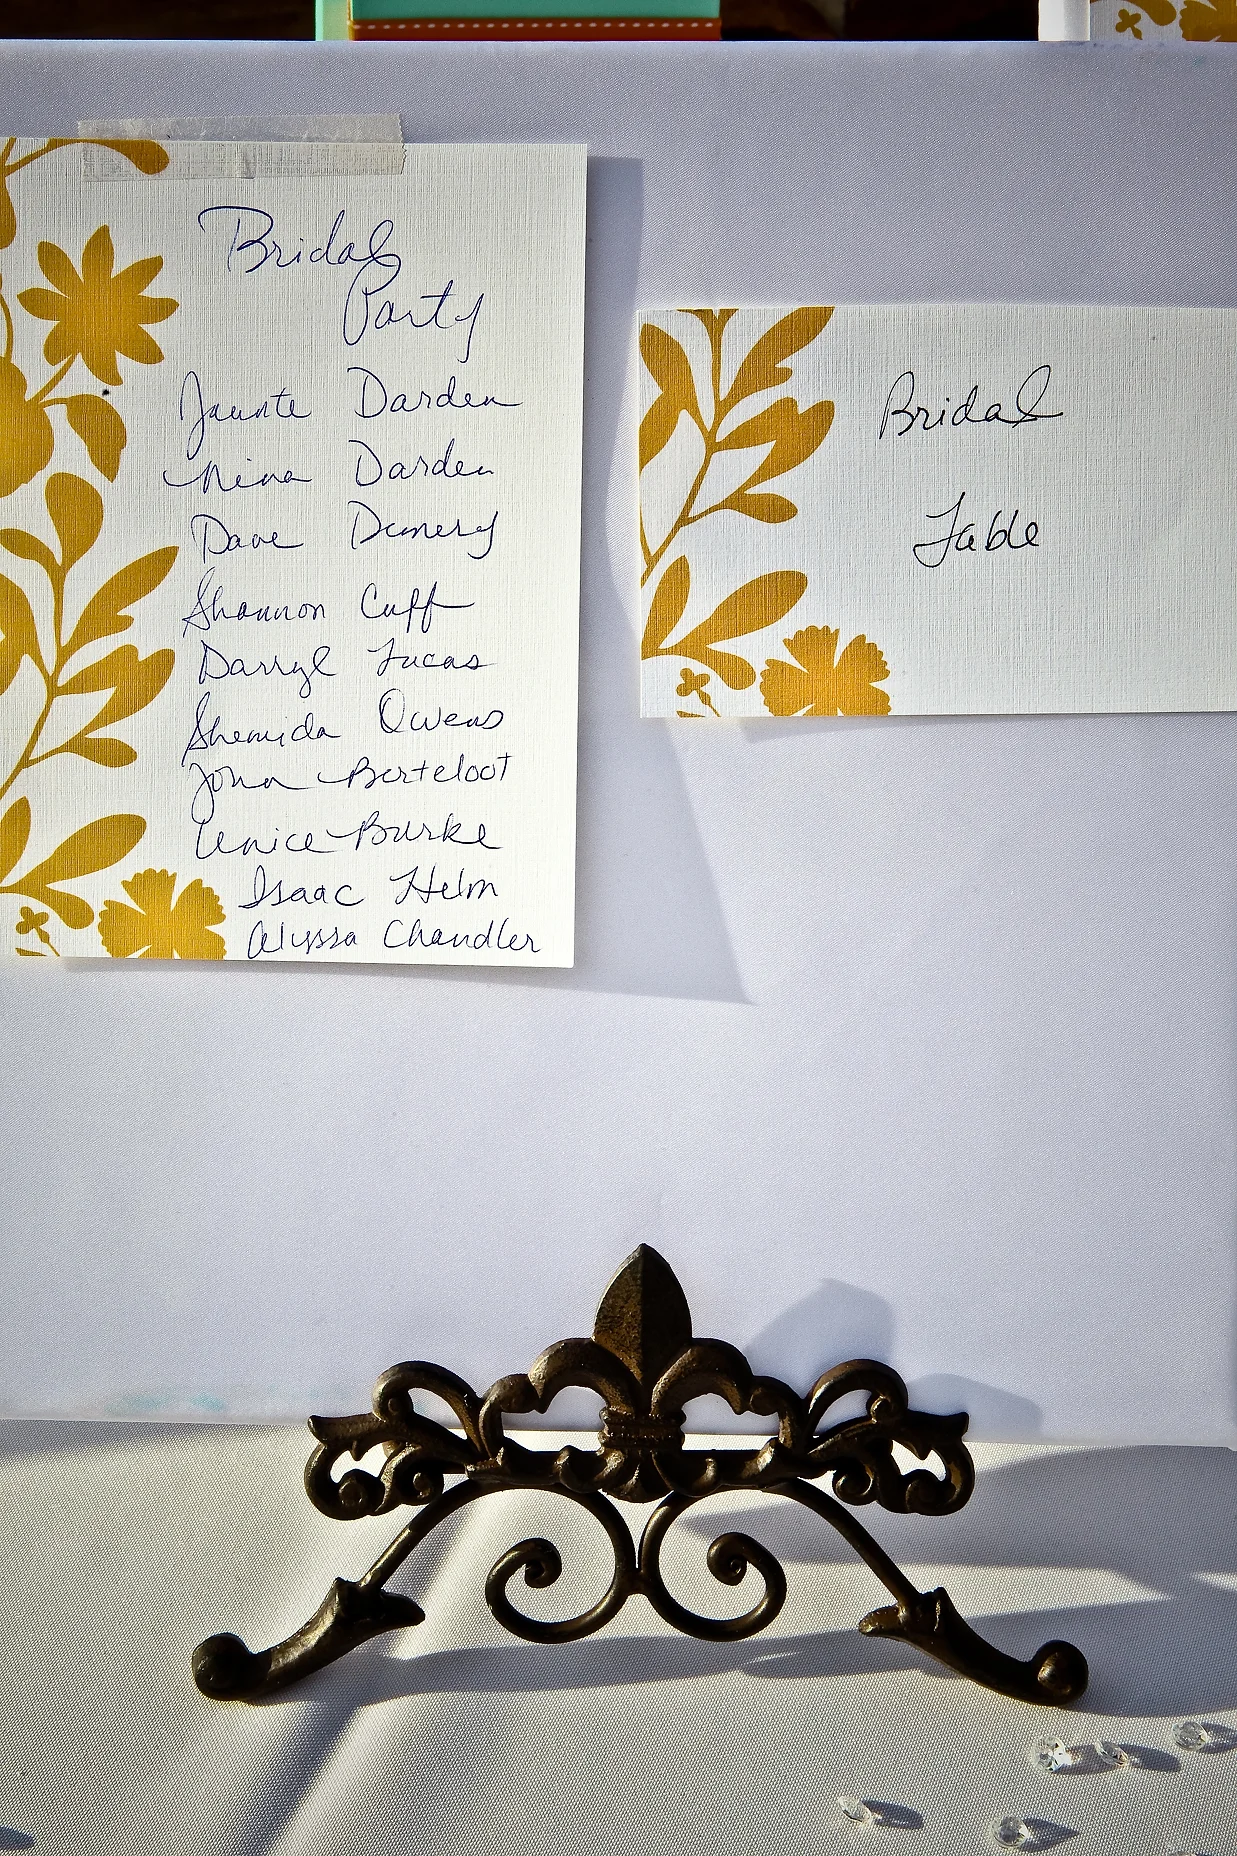 Bridal
Party
Jaunte Darden
Nina Darden
Dave Demery
Shannon Cuff
Darryl Lucas
Shemida Owens
John Berteloot
Lenice Burke
Isaac Helm
Alyssa Chandler
Bridal
Table